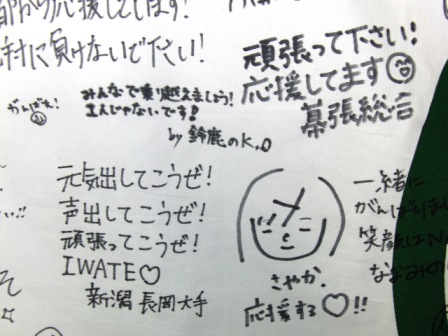 応援してます!
に負けないで下さい!
がんばれ!
みんなで乗り越えましょう!
1人じゃないです!
by 鈴鹿のK.O
頑張って下さい!
応援してます
幕張総合
元気出してこうぜ!
声出してこうぜ!
頑張ってこうぜ!
IWATE♡
新潟 長岡大手
さやか.
応援する♡!!
一緒に
がんばりまし
笑顔はN
ななみの